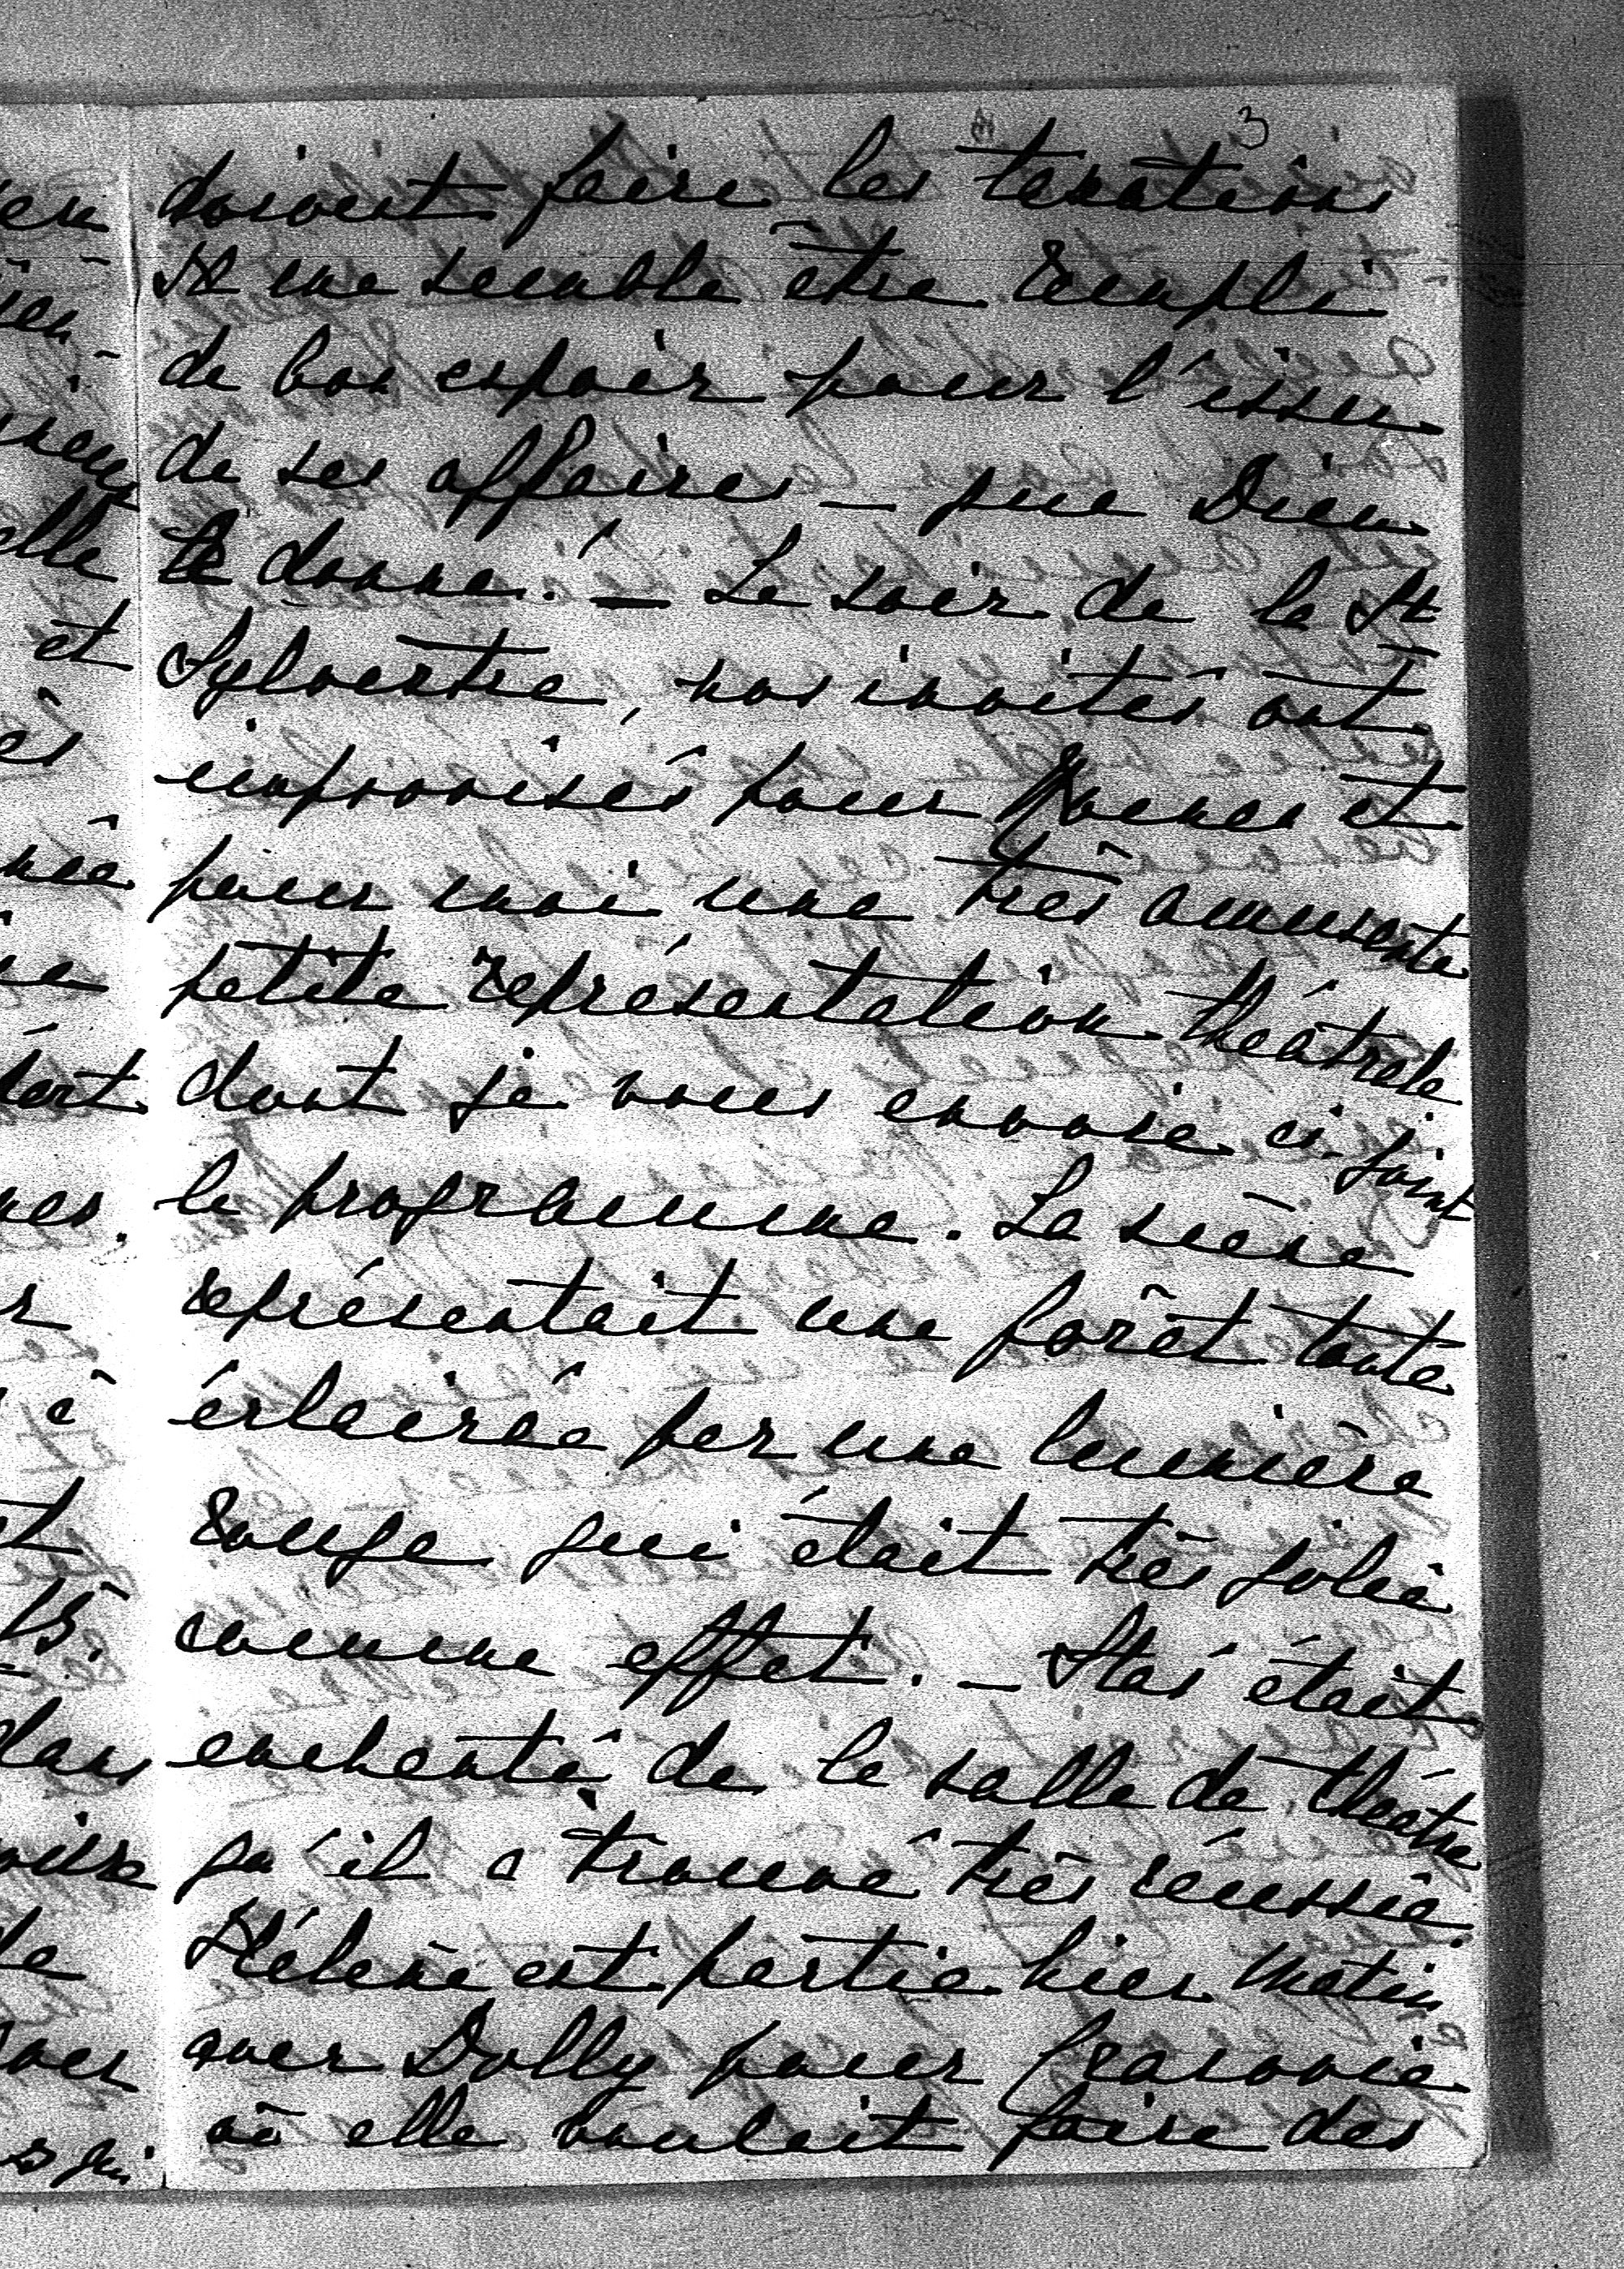 3
doivent faire les taxations
Il me semble être rempli
de bon espoir pour l'issue
de ses affaires _ que Dieu
le donne! — Le soir de la St
Sylvestre, nos invités ont
improvisés pour et
pour moi une très amusante
petite représentation théâtrale
dont je vous envoie ci-joint
le programme. La scène
représentait une forêt toute
éclairée par une lumière
rouge qui était très jolie
comme effet. — Stas était
enchanté de la salle de théâtre
qu'il a trouvé très réussie.
Hélène est partie hier matin
avec Dolly pour Cracovie
où elle voulait faire des